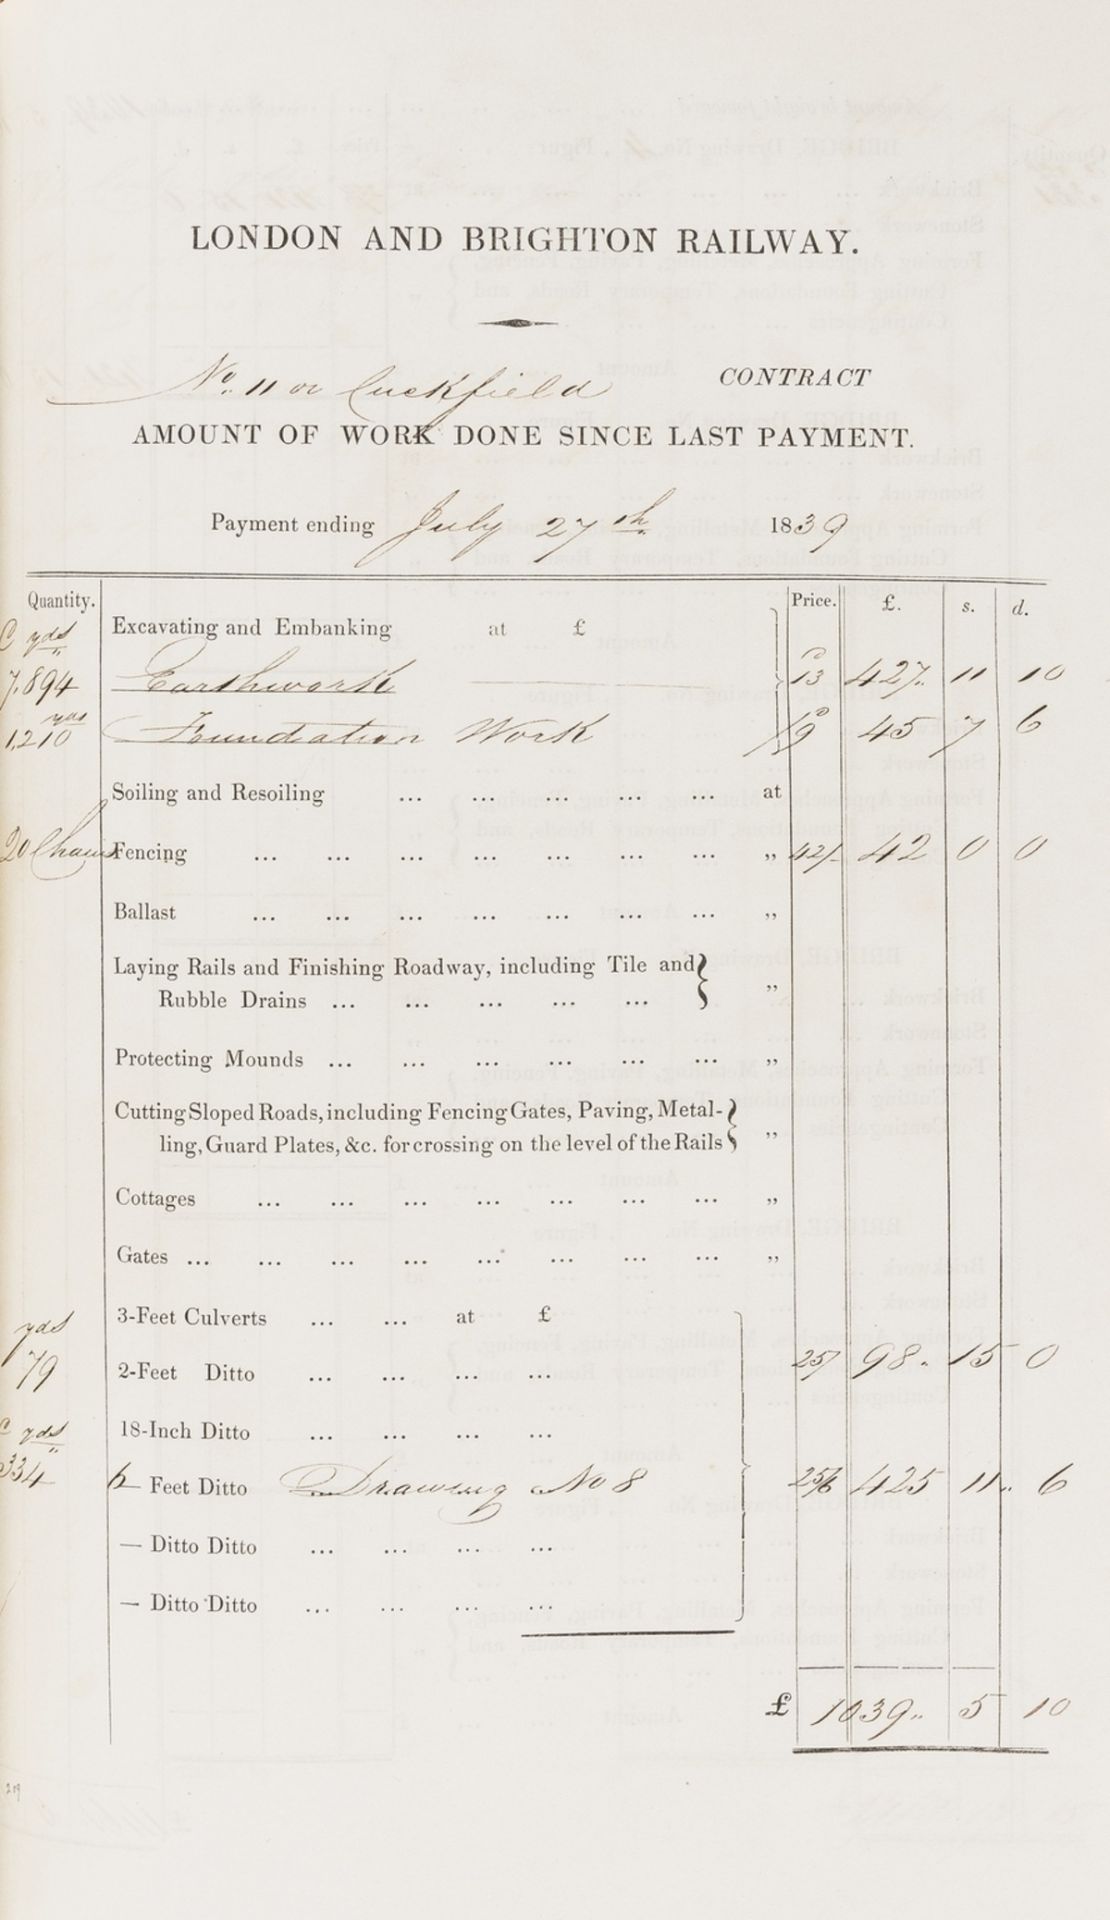 LONDON AND BRIGHTON RAILWAY.
No. 11 or Cuckfield CONTRACT
AMOUNT OF WORK DONE SINCE LAST PAYMENT.
Payment ending July 27th 1839
Quantity. Price. £. s. d.
Excavating and Embanking at £
C yds
7.894 Earthwork 13 427 11 10
yds
1,210 Foundation Work 9 45 7 6
Soiling and Resoiling ... ... ... ... ... at
20 Chains Fencing ... ... ... ... ... ... ... „ 42/- 42 0 0
Ballast ... ... ... ... ... ... ... „
Laying Rails and Finishing Roadway, including Tile and
Rubble Drains ... ... ... ... ... „
Protecting Mounds ... ... ... ... ... ... „
Cutting Sloped Roads, including Fencing Gates, Paving, Metal-
ling, Guard Plates, &c. for crossing on the level of the Rails „
Cottages ... ... ... ... ... ... ... „
Gates ... ... ... ... ... ... ... ... „
3-Feet Culverts ... ... at £
yds
79 2-Feet Ditto ... ... ... ... 25/ 98 15 0
18-Inch Ditto ... ... ... ...
C yds
334 Feet Ditto Drawing No 8 25/6 425 11 6
— Ditto Ditto ... ... ... ...
— Ditto Ditto ... ... ... ...
£ 1039 5 10
219